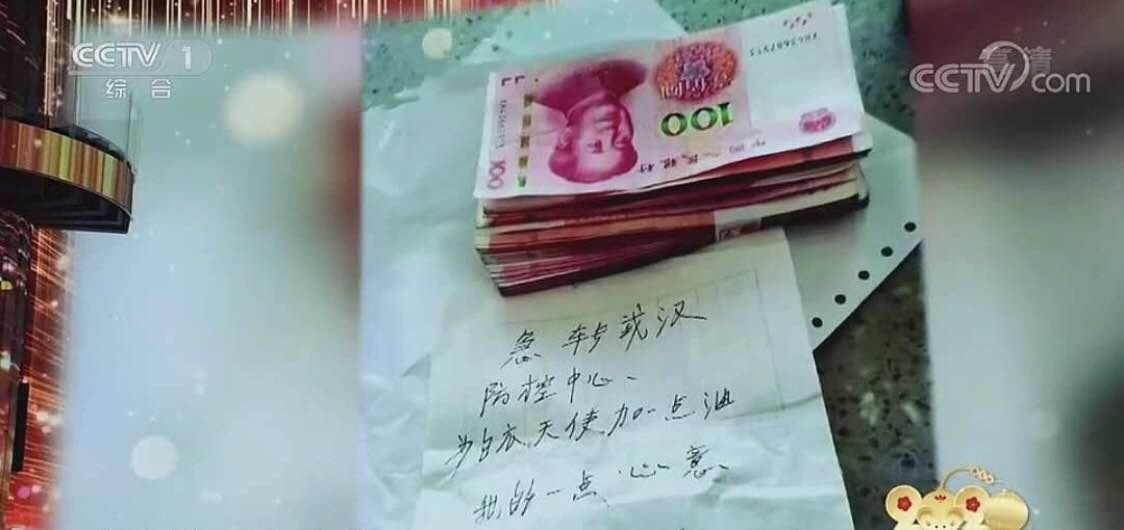 CCTV 1
综合
CCTV.com
100
100
急转武汉
防控中心、
为白衣天使加一点油
我的一点心意